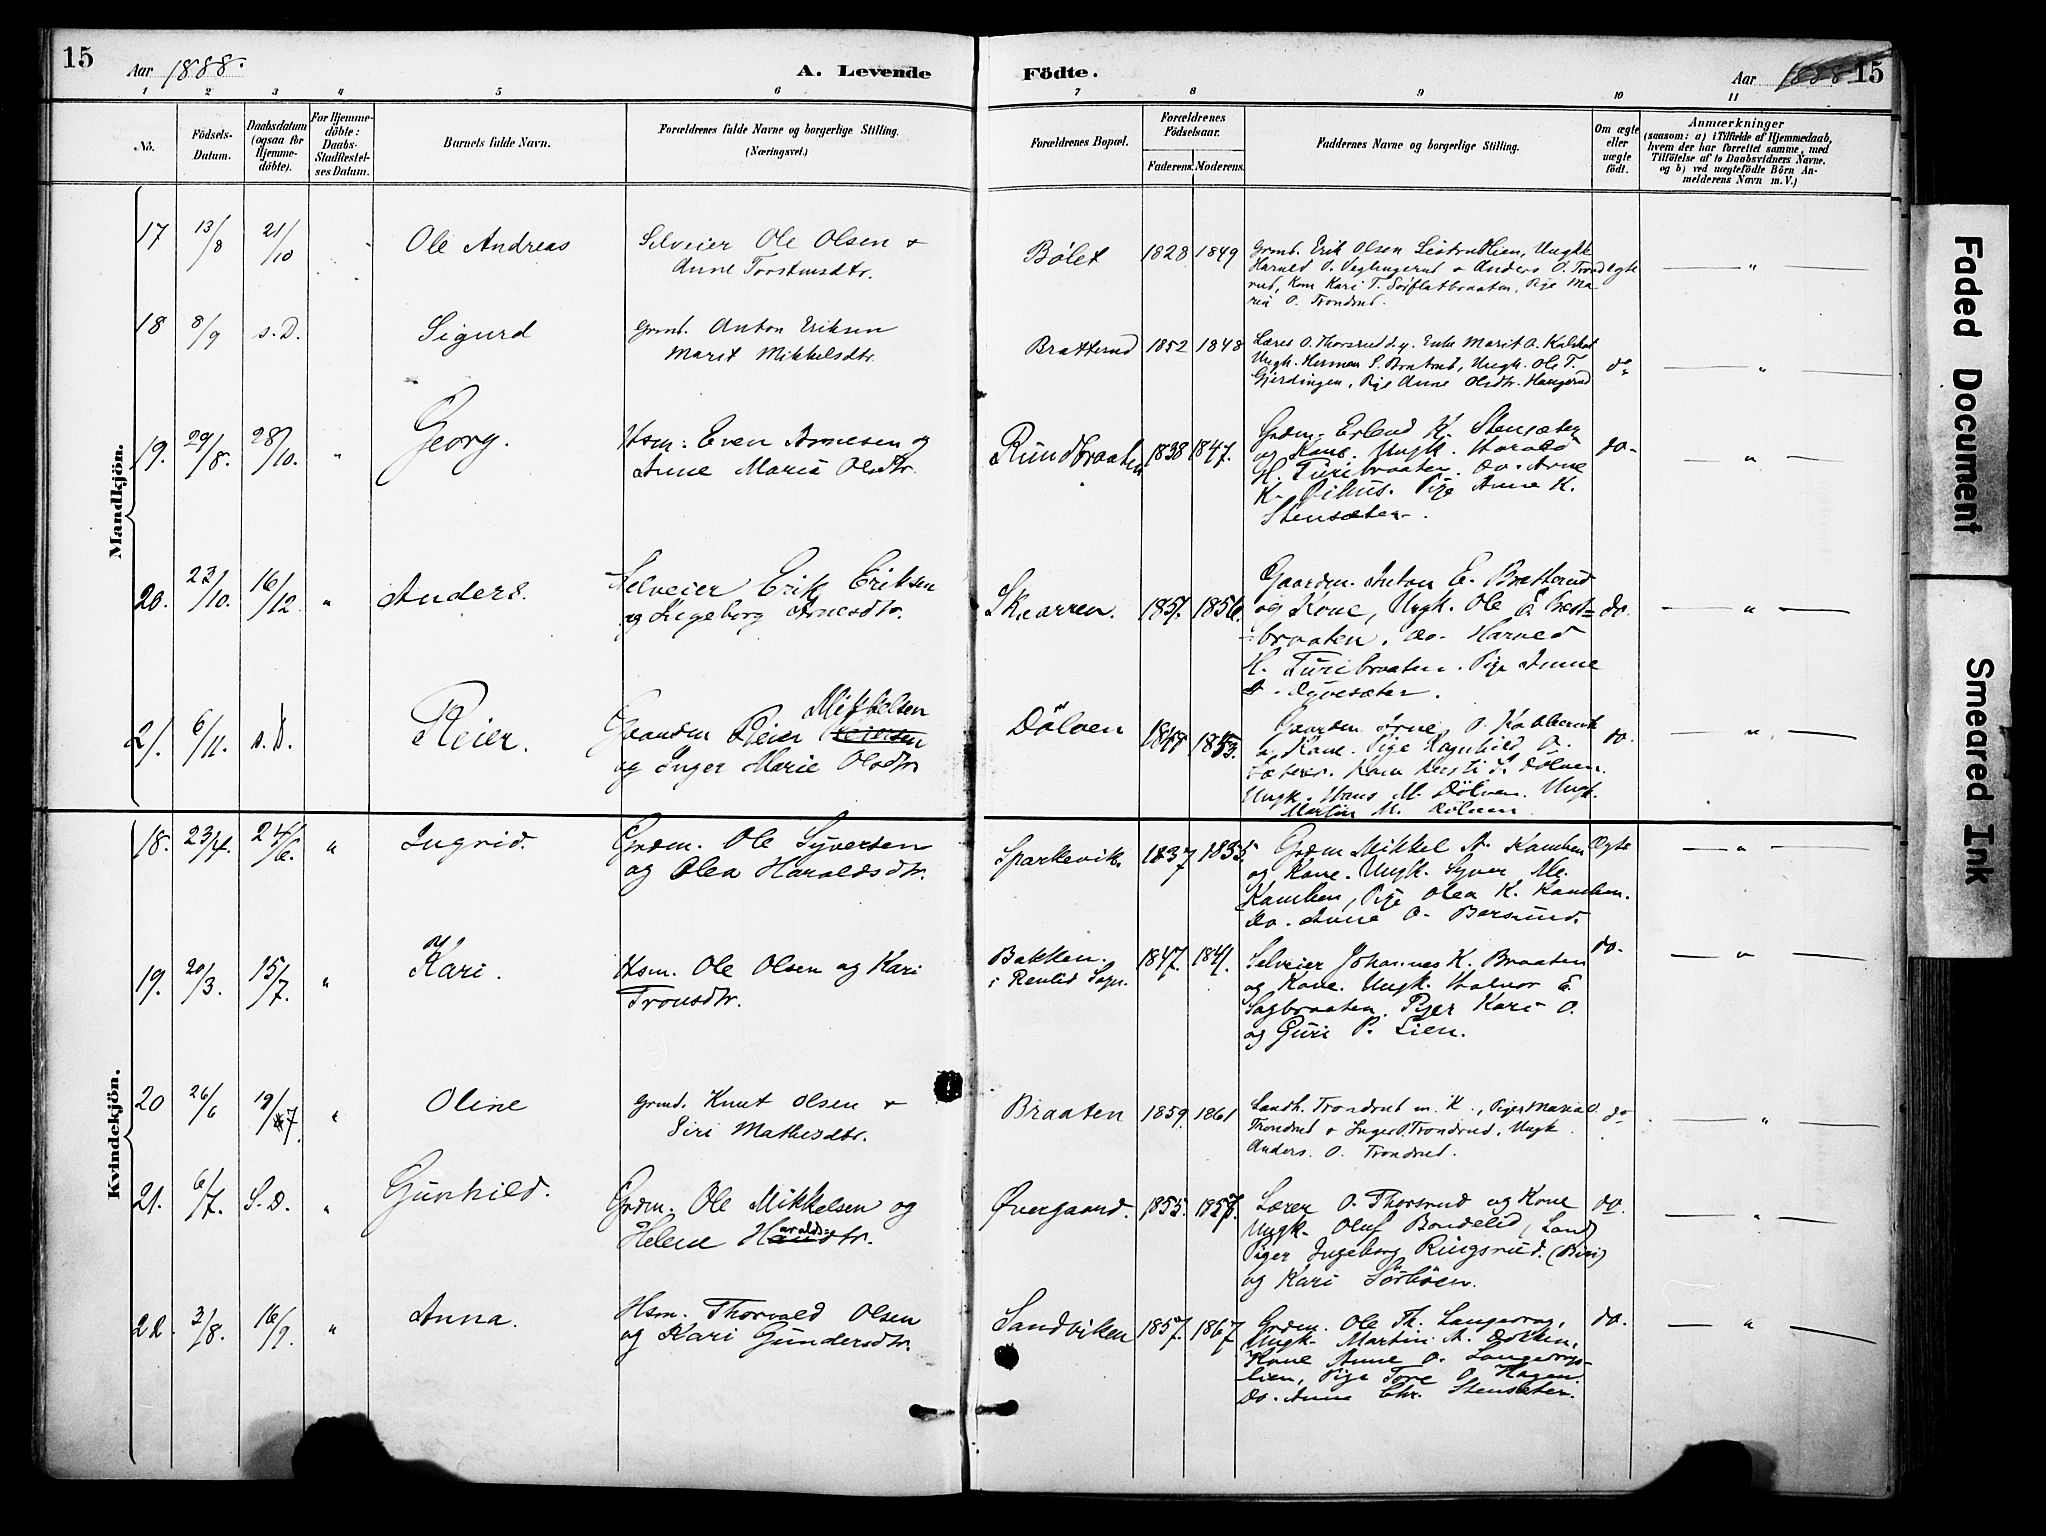 15
Aar 1888.
A. Levende Födte.
Aar 1888.
15
1 2 3 4 5 6 7 8 9 10 11
No.
Födsels-
Datum.
Daabsdatum
(ogsaa for
Hjemme-
döbte).
For Hjemme-
döbte:
Daabs-
Stadfæstel-
ses Datum.
Barnets fulde Navn.
Forældrenes fulde Navne og borgerlige Stilling.
(Næringsvei.)
Forældrenes Bopæl.
Forældrenes
Födselsaar.
Faderens. Moderens.
Faddernes Navne og borgerlige Stilling.
Om ægte
eller
uægte
födt.
Anmærkninger
(saasom: a) i Tilfælde af Hjemmedaab,
hvem der har forrettet samme, med
Tilföielse af to Daabsvidners Navne.
og b) ved uægtefödte Börn An-
melderens Navn m.V.)
Mandkjön.
17 13/8 21/10 Ole Andreas
Selveier Ole Olsen &
Anne Torstensdtr.
Bölet 1828 1849
Grmb. Erik Olsen Ungk.
Harald O. & Anders O. Trond
rud, Kone Kari T. Pige Ma
ria O. Trondrud.
ægte
— " —
18 8/9 s.D. Sigurd
Grmb. Anton Eriksen
Marit Mikkelsdtr.
Bratterud 1852 1848
Lærer O. Thorsrud Enke Marit O.
Ungk. Herman S. Ungk. Ole T.
Gjerdingen, Pige Anne Olsdtr. Haugerud
do
— " —
19. 29/8. 28/10. " Georg.
Hsm. Even Arnesen og
Anne Maria Olsdtr.
Rundbraaten 1838 1847.
Grdm. Erland K. Stensæter
og Kone. Ungk. Harald
H. Turibraaten. do. Arne
K. Pige Anne K.
Stensæter.
do.
— " —
20. 23/10. 16/12 " Anders.
Selveier Erik Eriksen
og Ingeborg Arnesdtr.
Skaarren. 1857. 1856.
Gaardm. Anton E. Bratterud
og Kone, Ungk. Ole E.
braaten. do. Harald
H. Turibraaten. Pige Anne
O. Dyvesæter.
do.
— " —
21. 6/11. s.D. Reier.
Mikkelsen
Gaardm Reier Reiersen
og Inger Marie Olsdtr.
Dölven 1848 1853.
Gaardm Arne O.
og Kone. Pige Ragnhild O.
Sæteren. Kone Kersti S. Dölven.
Ungk. Hans M. Dölven. Ungk.
Martin M. Dölven
do.
— " —
Kvindekjön.
18. 23/4. 24/6. " Ingrid.
Grdm. Ole Syversen
og Olea Haraldsdtr.
Sparkevik. 1837 1855.
Grdm Mikkel N. Kamben
og Kone. Ungk. Syver M.
Kamben, Pige Olea K. Kamben.
Do. Anne O. Bersund.
Ægte
— " —
19. 20/3. 15/7. " Kari.
Hsm. Ole Olsen og Kari
Tronsdtr.
Bakken.
i Renlid Sogn. 1847. 1841.
Selveier Johannes K. Braaten
og Kone. Ungk. Halvor E.
Sagbraaten. Piger Kari O.
og Guri P. Lien.
do.
— " —
20 26/6 19/7. " Oline
Grmd. Knut Olsen &
Siri Mathisdtr.
Braaten 1859. 1861
Landh. Trondrud m. K., Piger Maria O.
Trondrud & Inger O. Trondrud, Ungk.
Anders. O. Trondrud.
do
— " —
21. 6/7. S.D. " Gunhild.
Grdm. Ole Mikkelsen og
Helene Haraldsdtr.
Övergaard. 1855. 1858.
Lærer O. Thorsrud og Kone
Ungk. Oluf Bondelid, (Land)
Piger Ingeborg Ringsrud. (Biri)
og Kari Sörböen.
do.
— " —
22. 3/8. 16/9. " Anna.
Hsm. Thorvald Olsen
og Kari Gundersdtr.
Sandviken 1857. 1867
Grdm. Ole Th. Langedrag,
Ungk. Martin A. Dokken,
Kone Anne O. Langedrags-
lien, Pige Tore O. Hagen.
Do. Anne Chr. Stensæter.
do.
— " —
Faded Document
Smeared Ink